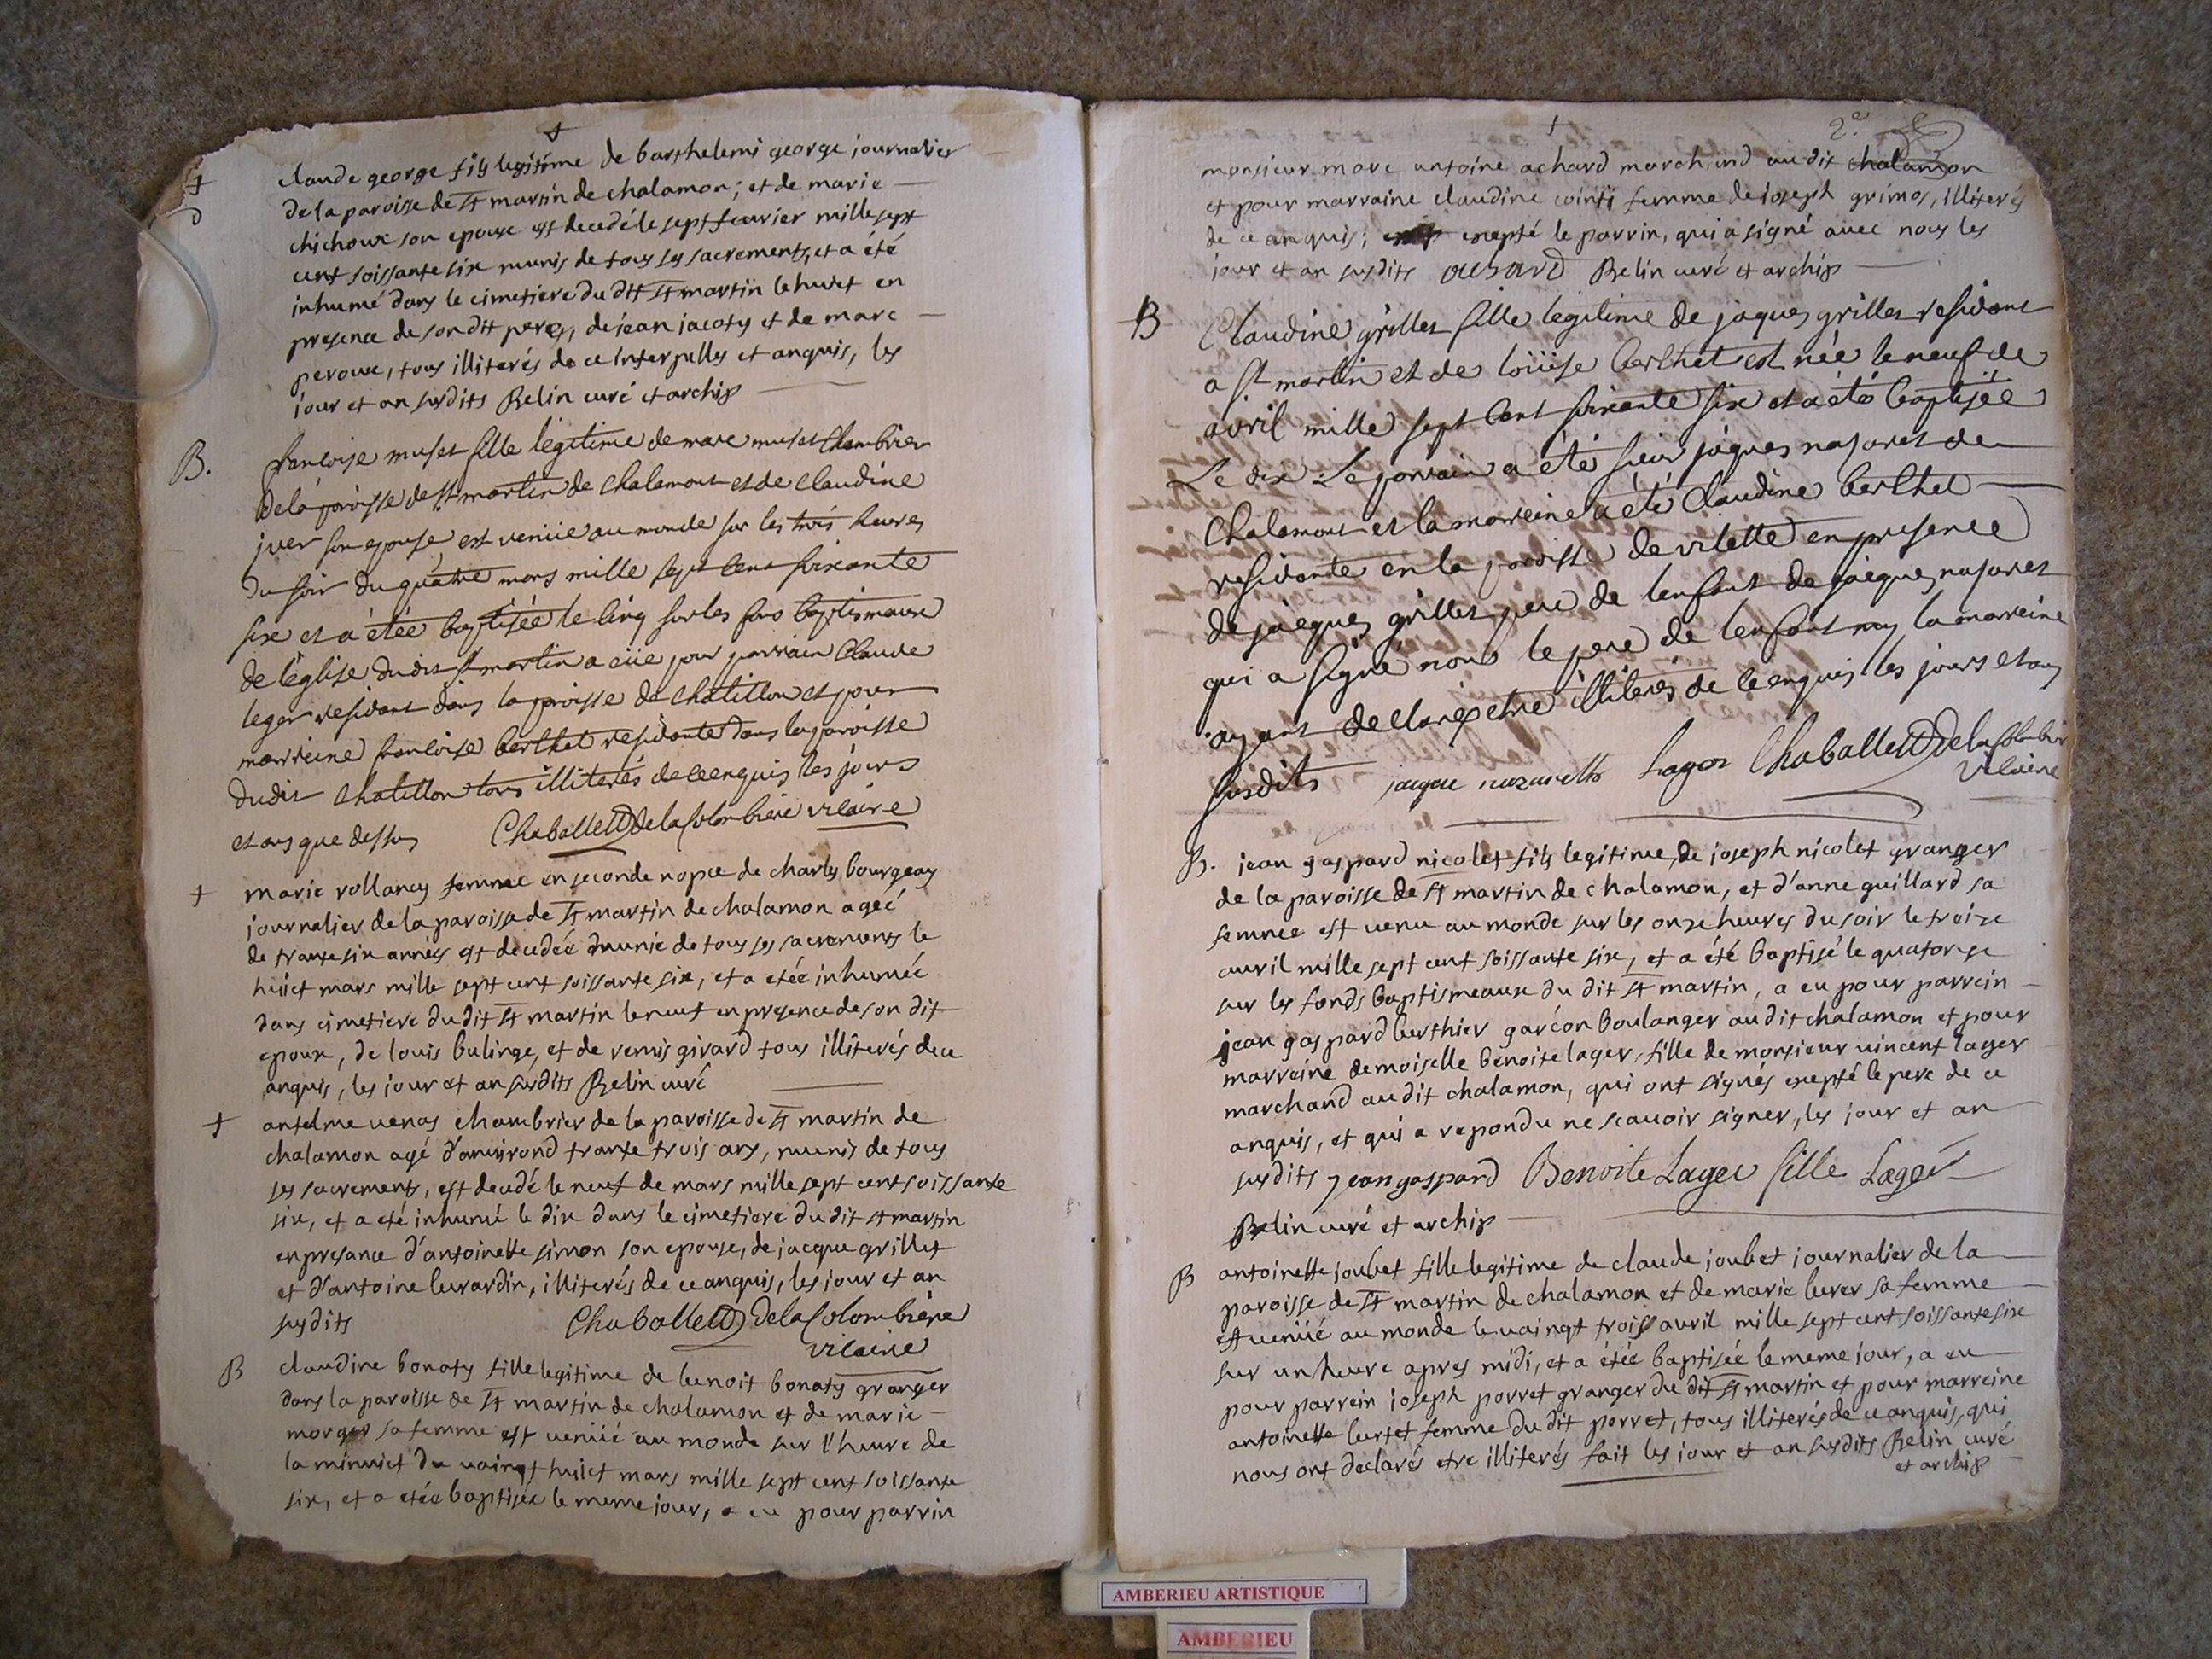 claude george fils legitime de barthelemi george journalier
de la paroisse de st martin de chalamon; et de marie
chichoux son epouse est decedé le sept feurier mille sept
cent soissante six munis de tous ses sacrements, et a été
inhumé dans le cimetiere du dit st martin le huict en
presence de son dit pere, de jean jacoty et de marc
peroux, tous illiterés de ce interpelles et anquis, les
jour et an susdits Belin curé et archip
B. francoise muset fille legitime de marc muset Chambrier
de la paroisse de st martin de chalamont et de claudine
juer son epouse est venüe au monde sur les trois heures
du soir du quatre mars mille sept cent soixante
six et a étée baptisée le cinq sur les fons baptismaux
de l'église dudit st martin a eüe pour parrain Claude
leger residant dans la paroisse de chatillon et pour
marreine francoise berthet residante dans la paroisse
dudit chatillon tous illiterés de ce enquis les jours
et ans que dessus Chaballet de la Colombiere vicaire
marie rollancy femme en seconde nopce de charles bourgeay
journalier de la paroisse de st martin de chalamon ageé
de trante six années est decedée munie de tous ses sacrements le
huict mars mille sept cent soissante six, et a etée inhumée
dans cimetiere du dit st martin le neuf en presence de son dit
epoux, de louis bulinge, et de remis girard tous illiterés de ce
anquis, les jour et an susdits Belin curé
antelme venas chambrier de la paroisse de st martin de
chalamon agé d'anuirond trante trois ans, munis de tous
ses sacrements, est decedé le neuf de mars mille sept cent soissante
six, et a eté inhumé le dix dans le cimetiere du dit st martin
en presance d'antoinette simon son epouse, de jacque grillet
et d'antoine burardin, illiterés de ce anquis, les jour et an
susdits Chaballet de la Colombiere
vicaire
B claudine bonaty fille legitime de benoit bonaty granger
dans la paroisse de st martin de chalamon et de marie
morger sa femme est venüe au monde sur l'heure de
la minuict du vaingt huict mars mille sept cent soissante
six, et a etée baptisée le meme jour, a eu pour parrin
2e
monsieur marc antoine achard marchand au dit chalamon
et pour marraine claudine cointi femme de joseph grimos, illiterés
de ce anquis; excepté le parrin, qui a signé auec nous les
jour et an susdits achard Belin curé et archip
B Claudine grillet fille legitime de jaques grillet residant
a st martin et de loüise berthet est née le neuf de
avril mille sept cent soixante six et a été baptisée
Le dix Le parrain a été sieur jâques nasaret de
Chalamont et la marreine a été Claudine berthet
residante en la paroisse de vilette en presence
de jâcques grillet pere de lenfant de jâcques nasaret
qui a signé nons le pere de lenfant ny la marreine
ayant declarés etre illiterés de ce enquis les jours et ans
susdits jacque nazarett Lager Chaballet de la Colombiere
vicaire
B. jean gaspard nicolet fils legitime, de joseph nicolet granger
de la paroisse de st martin de chalamon, et d'anne guillard sa
femme est venu au monde sur les onze heures du soir le treize
auril mille sept cent soissante six, et a été baptisé le quatorze
sur les fonds baptismeaux du dit st martin, a eu pour parrein
jean gaspard berthier garcon boulanger au dit chalamon et pour
marreine demoiselle benoite lager, fille de monsieur vincent lager
marchand au dit chalamon, qui ont signés excepté le pere de ce
anquis, et qui a repondu ne scauoir signer, les jour et an
susdits jean gaspard Benoite Lager fille Lager
Belin curé et archip
B antoinette joubet fille legitime de claude joubet journalier de la
paroisse de st martin de chalamon et de marie burer sa femme
est venüe au monde le vaingt trois auril mille sept cent soissante six
sur un heure apres midi, et a étée baptisée le meme jour, a eu
pour parrein joseph porret granger du dit st martin et pour marreine
antoinette burtet femme du dit porret, tous illiterés de ce anquis, qui
nous ont declarés etre illiterés fait les jour et an susdits Belin curé
et archip
AMBERIEU ARTISTIQUE
AMBERIEU